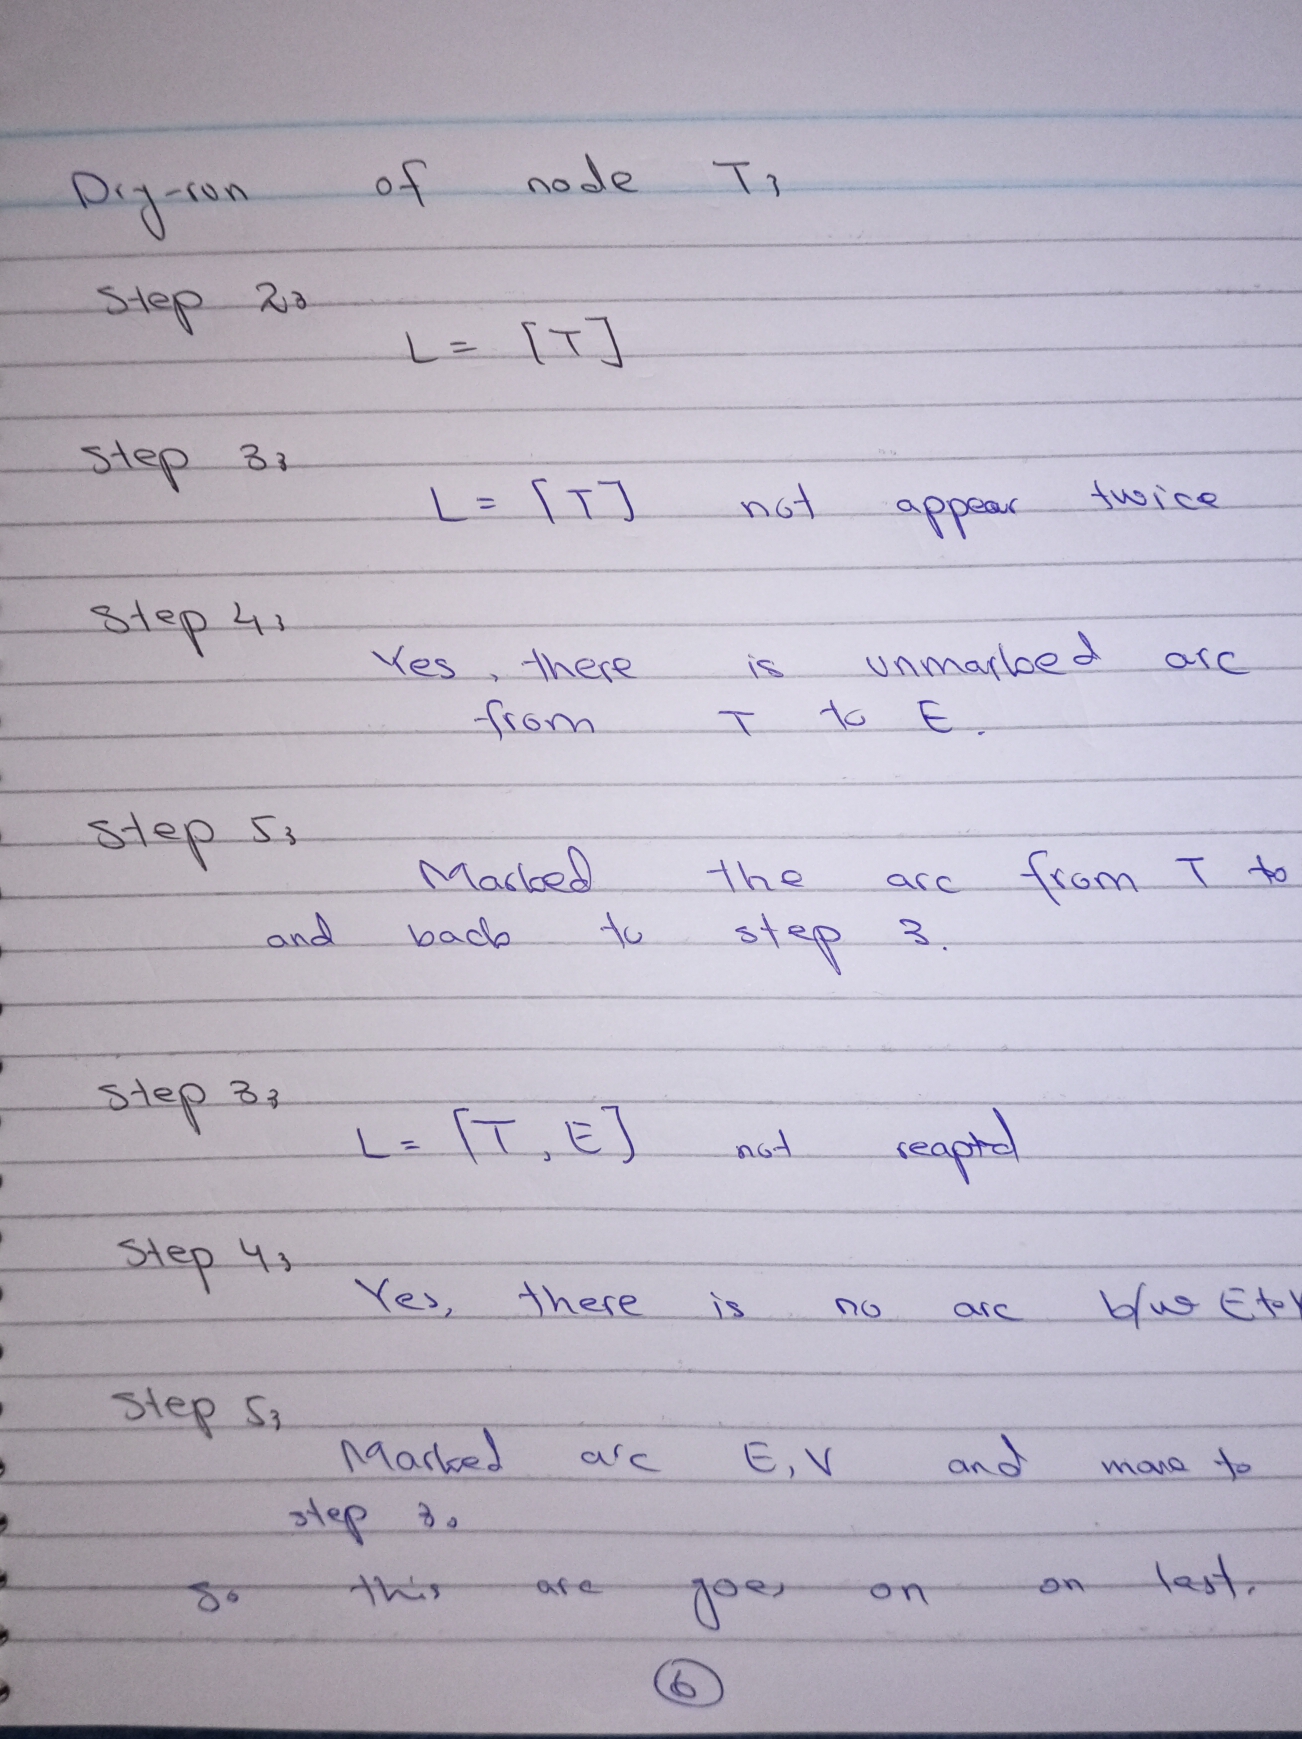 Dry-run of node T:
Step 2:
L = [T]
Step 3:
L = [T] not appear twice
Step 4:
Yes, there is unmarked arc
from T to E.
Step 5:
Marked the arc from T to
and back to step 3.
Step 3:
L = [T, E] not reaptd
Step 4:
Yes, there is no arc b/w E to V
Step 5:
Marked arc E, V and move to
step 3.
So this are goes on on last.
6